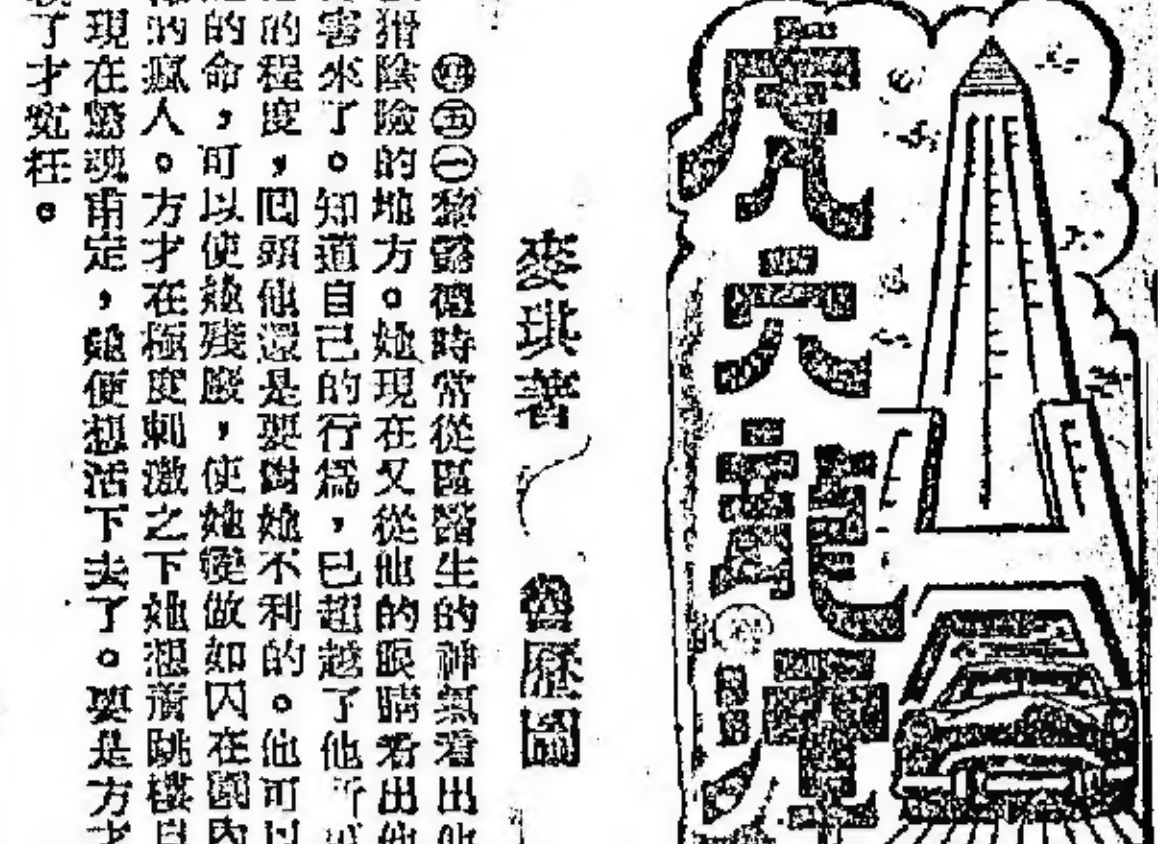 虎穴龍潭
麥琪著 魯歷圖
㊃㊄㊀黎懿德時常從區醫生的神氣看出他
猾陰險的地方。她現在又從他的眼睛看出他
害來了。知道自己的行爲,已超越了他所可
的程度,回頭他還是要對她不利的。他可以
的命,可以使她殘廢,使她變做如囚在園內
的瘋人。方才在極度刺激之下她想着跳樓自
現在驚魂甫定,她便想活下去了。要是方才
了才寃枉。